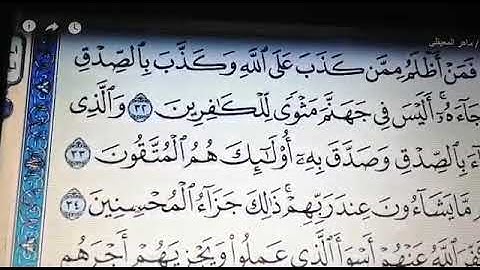 / ماهر المعيقلي
فَمَنْ أَظْلَمُ مِمَّن كَذَبَ عَلَى ٱللَّهِ وَكَذَّبَ بِٱلصِّدْقِ
جَآءَهُۥٓ ۚ أَلَيْسَ فِى جَهَنَّمَ مَثْوًى لِّلْكَـٰفِرِينَ ٣٢ وَٱلَّذِى
ءَ بِٱلصِّدْقِ وَصَدَّقَ بِهِۦٓ ۙ أُو۟لَـٰٓئِكَ هُمُ ٱلْمُتَّقُونَ ٣٣
مَّا يَشَآءُونَ عِندَ رَبِّهِمْ ۚ ذَٰلِكَ جَزَآءُ ٱلْمُحْسِنِينَ ٣٤
ٱللَّهُ عَنْهُمْ أَسْوَأَ ٱلَّذِى عَمِلُوا۟ وَيَجْزِيَهُمْ أَجْرَهُم